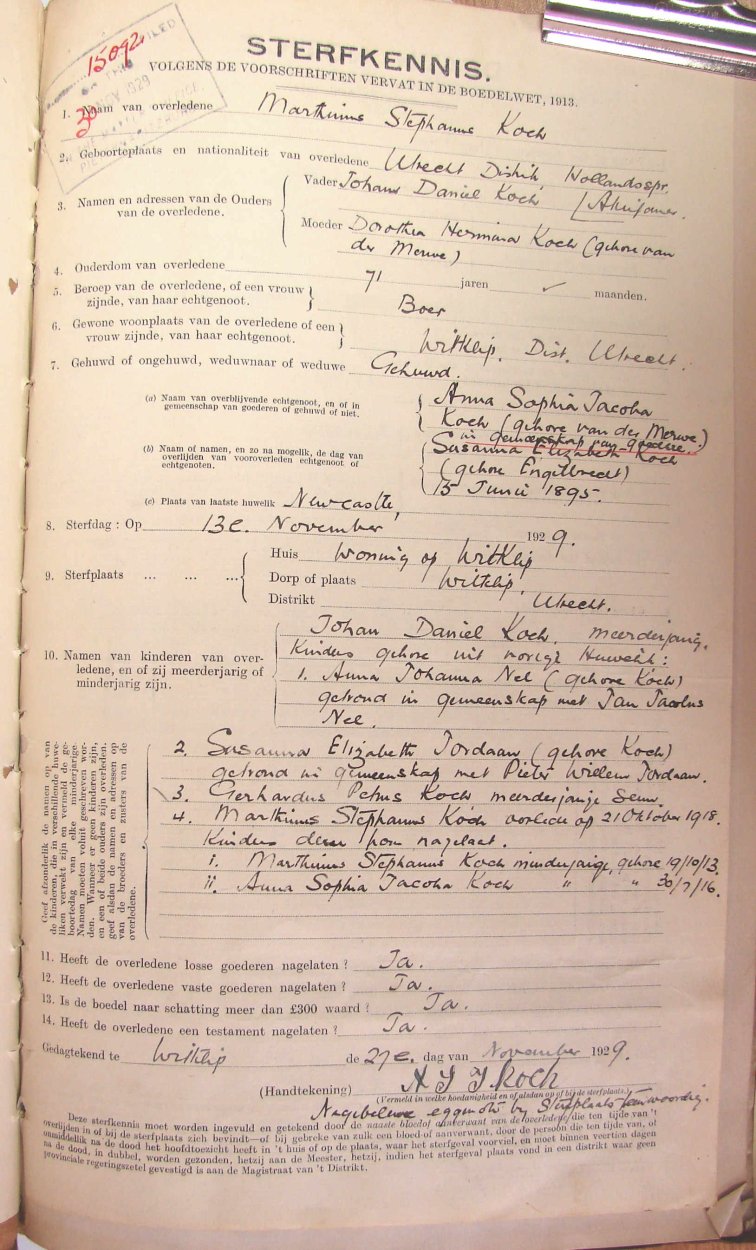 15092
FILED
1929
30
STERFKENNIS.
VOLGENS DE VOORSCHRIFTEN VERVAT IN DE BOEDELWET, 1913.
1. Naam van overledene Marthinus Stephanus Koch
2. Geboorteplaats en nationaliteit van overledene Utrecht Distrik, Hollandsspr.
Afrikaner.
3. Namen en adressen van de Ouders van de overledene.
Vader Johans Daniel Koch
Moeder Dorothea Hermina Koch (gebore van
der Merwe)
4. Ouderdom van overledene 71 jaren maanden.
5. Beroep van de overledene, of een vrouw
zijnde, van haar echtgenoot.
Boer
6. Gewone woonplaats van de overledene of een
vrouw zijnde, van haar echtgenoot.
Witklip, Dist. Utrecht.
7. Gehuwd of ongehuwd, weduwnaar of weduwe Gehuwd.
(a) Naam van overblijvende echtgenoot, en of in
gemeenschap van goederen of gehuwd of niet.
Anna Sophia Jacoba
Koch (gebore van der Merwe.)
in gemeenskap van goedere.
(b) Naam of namen, en zo na mogelik, de dag van
overlijden van vooroverleden echtgenoot of
echtgenoten.
Susanna Elizabeth Koch
(gebore Engelbrecht)
15 Junie 1895.
(c) Plaats van laatste huwelik Newcastle,
8. Sterfdag : Op 13e. November 1929.
9. Sterfplaats ... ... ...
Huis Woning op Witklip
Dorp of plaats Witklip.
Distrikt Utrecht.
10. Namen van kinderen van over-
ledene, en of zij meerderjarig of
minderjarig zijn.
Johan Daniel Koch. meerderjarig.
Kinders gebore uit vorige Huwelik :
1. Anna Johanna Nel (gebore Koch)
getroud in gemeenskap met Jan Jacobus
Nel.
Geef afzonderlik de namen op van
de kinderen, die in verschillende huwe-
liken verwekt zijn en vermeld de ge-
boortedag van elke minderjarige.
Namen moeten voluit geschreven wor-
den. Wanneer er geen kinderen zijn,
en een of beide ouders zijn overleden.
geef alsdan de namen en adressen op
van de broeders en zusters van de
overledene.
2. Susanna Elizabeth Jordaan (gebore Koch)
getroud in gemeenskap met Pieter Willem Jordaan.
3. Gerhardus Petrus Koch meerderjarige Seun.
4. Marthinus Stephanus Koch oorlede op 21 Oktober 1918.
Kinders deur hom nagelaat.
i. Marthinus Stephanus Koch minderjarige, gebore 19/10/13.
ii. Anna Sophia Jacoba Koch " " 30/7/16.
11. Heeft de overledene losse goederen nagelaten ? Ja.
12. Heeft de overledene vaste goederen nagelaten ? Ja.
13. Is de boedel naar schatting meer dan £300 waard ? Ja.
14. Heeft de overledene een testament nagelaten ? Ja.
Gedagtekend te Witklip de 27e. dag van November 1929.
(Handtekening) A S J. Koch
(Vermeld in welke hoedanigheid en of alsdan op of bij de sterfplaats.)
Nagebelewe eggenote by Sterfplaats teenwoordig.
Deze sterfkennis moet worden ingevuld en getekend door de naaste bloed of aanverwant van de overledene, die ten tijde van 't
overlijden in of bij de sterfplaats zich bevindt—of bij gebreke van zulk een bloed-of aanverwant, door de persoon die ten tijde van, of
onmiddellik na de dood het hoofdtoezicht heeft in 't huis of op de plaats, waar het sterfgeval voorviel, en moet binnen veertien dagen
na de dood, in dubbel, worden gezonden, hetzij aan de Meester, hetzij, indien het sterfgeval plaats vond in een distrikt waar geen
provinciale regeringszetel gevestigd is aan de Magistraat van 't Distrikt.